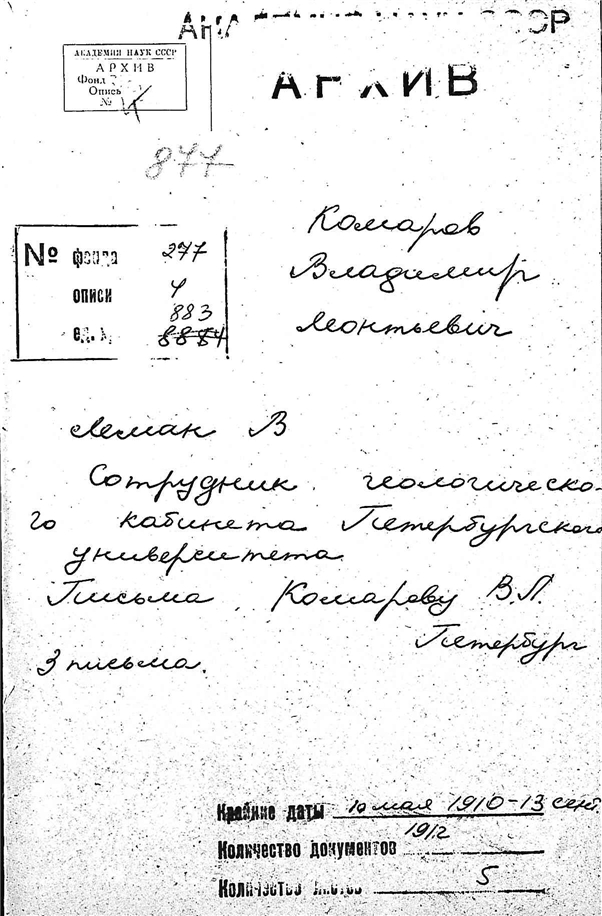 АКАДЕМИЯ НАУК СССР
АРХИВ
АКАДЕМИЯ НАУК СССР
АРХИВ
Фонд
Опись
№
877
№ фонда 277
описи 4
883
ед. х. 8884
Комаров
Владимир
Леонтьевич
Леман В
Сотрудник геологическо-
го кабинета Петербургского
университета
Письма Комарову В.Л.
Петербург
3 письма.
Крайние даты 10 мая 1910-13 сент.
1912
Количество документов
Количество листов 5